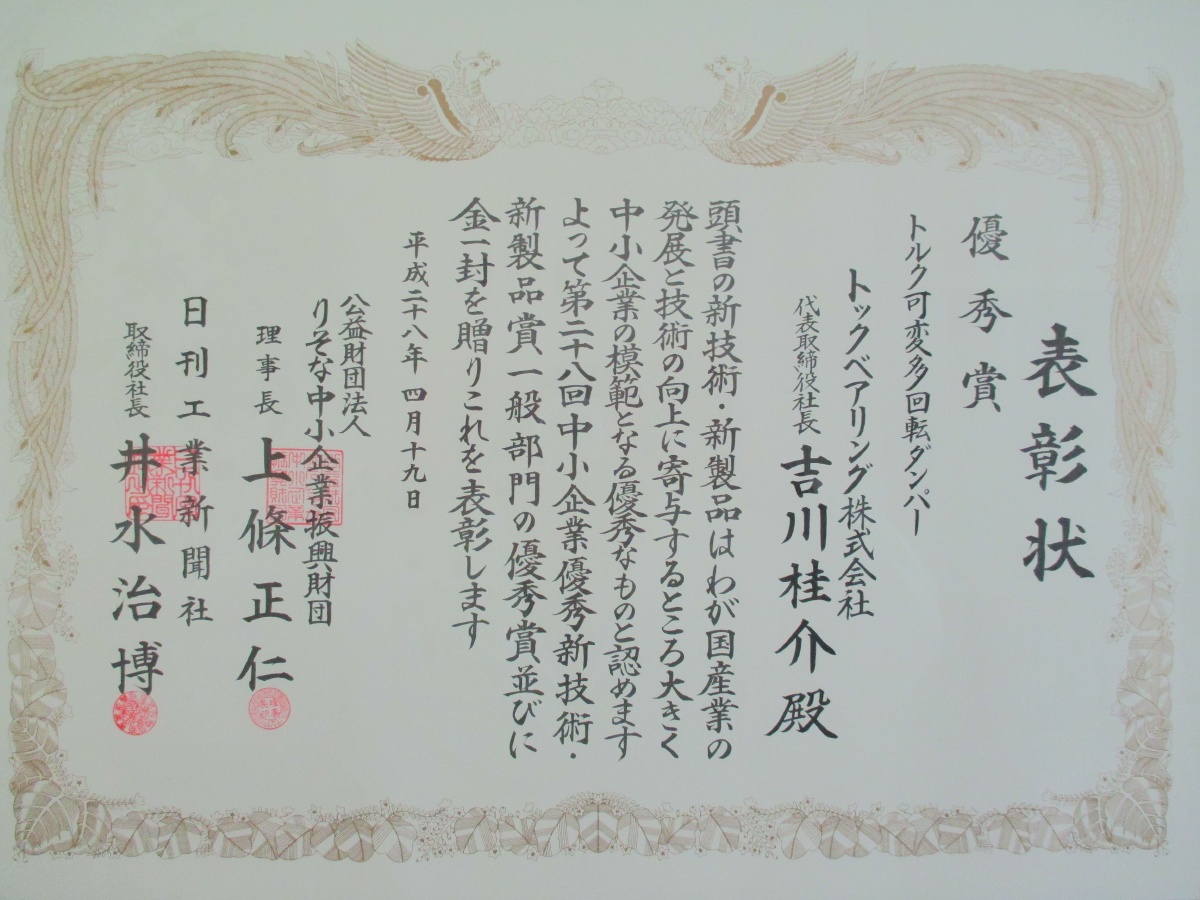 表彰状
優秀賞
トルク可変多回転ダンパー
トックベアリング株式会社
代表取締役社長 吉川桂介殿
頭書の新技術・新製品はわが国産業の
発展と技術の向上に寄与するところ大きく
中小企業の模範となる優秀なものと認めます
よって第二十八回中小企業優秀新技術・
新製品賞一般部門の優秀賞並びに
金一封を贈りこれを表彰します
平成二十八年 四月十九日
公益財団法人
りそな中小企業振興財団
理事長 上條正仁
日刊工業新聞社
取締役社長 井水治博